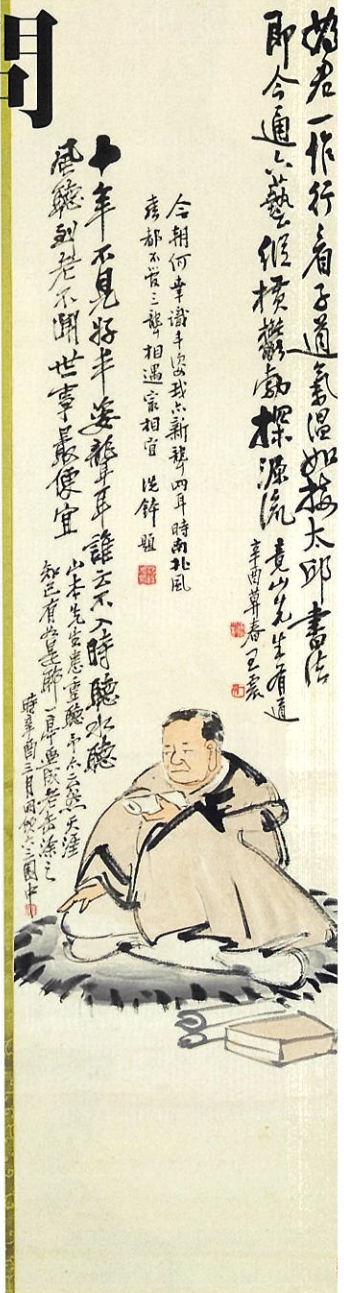 為君一作行看子道氣温如接太邱書法
即今通六藝縱橫鬱勃探源流
竟山先生有道
辛酉莫春王震
今朝何幸識丰姿我亦新聾四耳時南北風
都不管三聾相遇最相宜 題
十年不見好丰姿聾耳誰云不入時聽水聽
風聽到老不聞世事最便宜
山本先生患重聽予亦云然天涯
知己有如是耶一亭畫成老缶添之
時辛酉三月同飲六三園中